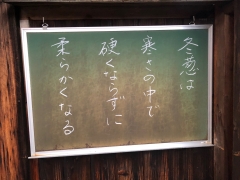 冬葱は
寒さの中で
硬くならずに
柔らかくなる